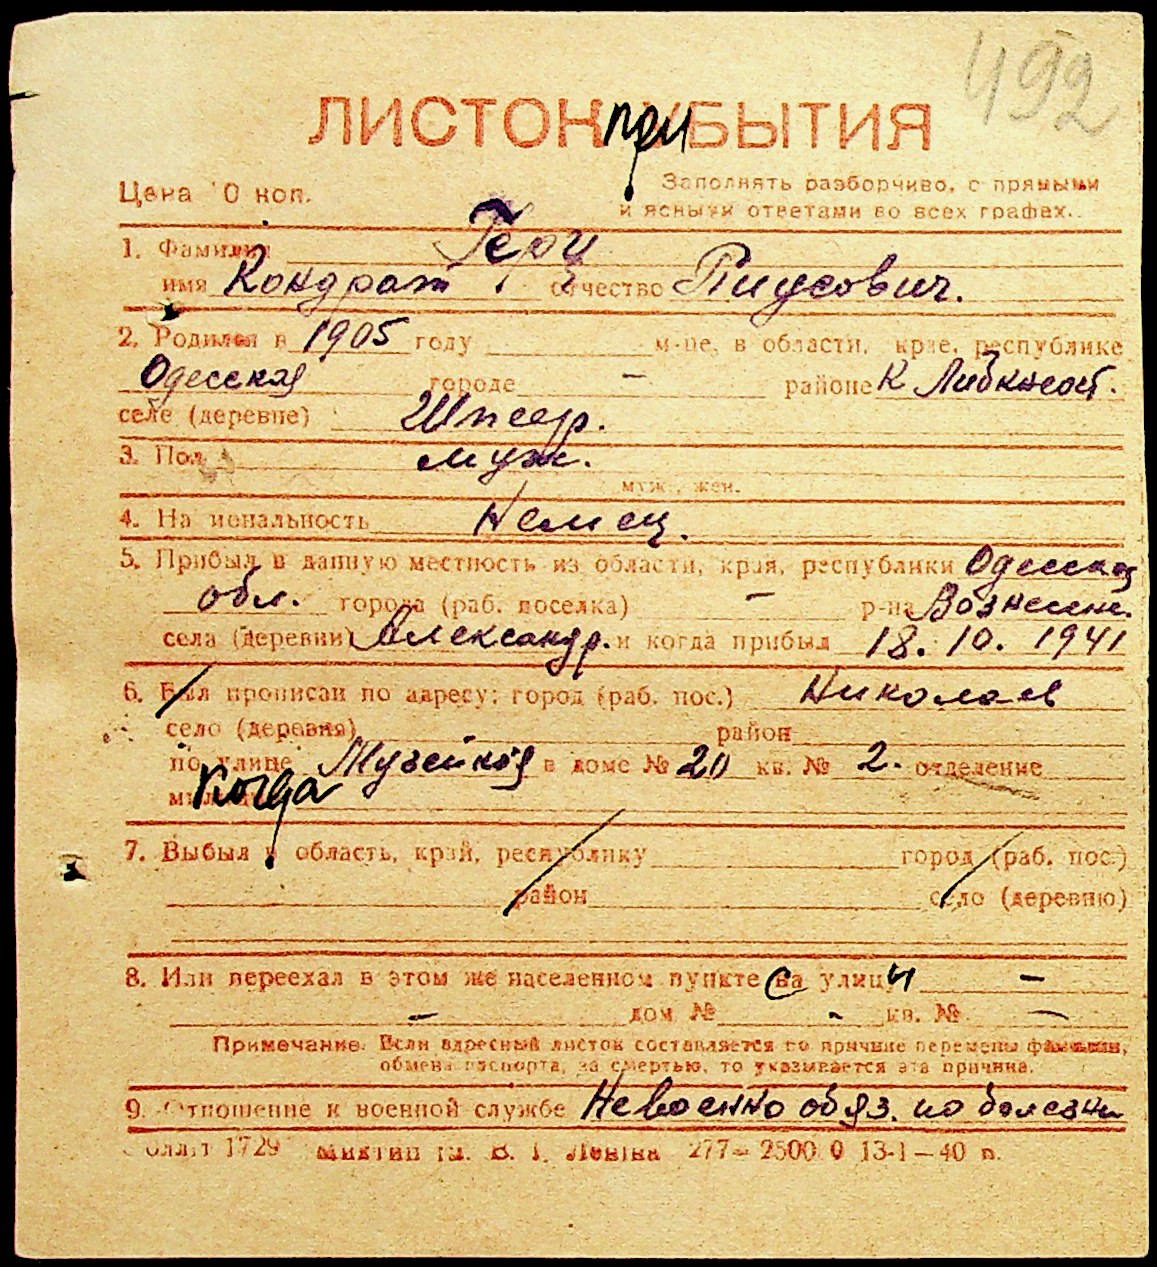 492
ЛИСТОК при УБЫТИЯ
Цена 10 коп.
Заполнять разборчиво, с прямыми
и ясными ответами во всех графах.
1. Фамилия Герц
имя Кондрат отчество Пиусович.
2. Родился в 1905 году м-це, в области, крае, республике
Одесская городе - районе К Либкнехт.
селе (деревне) Шпеер.
3. Пол муж.
муж., жен.
4. Национальность Немец.
5. Прибыл в данную местность из области, края, республики Одесская
обл. города (раб. поселка) - р-на Вознесенс.
села (деревни) Александр. и когда прибыл 18. 10. 1941
6. Был прописан по адресу: город (раб. пос.) Николаев
село (деревня) район
по улице Музейная в доме № 20 кв. № 2. отделение
милиции Когда
7. Выбыл в область, край, республику город (раб. пос.)
район село (деревню)
8. Или переехал в этом же населенном пункте с на улицы -
- дом № - кв. № -
Примечание. Если адресный листок составляется по причине перемены фамилии,
обмена паспорта, за смертью, то указывается эта причина.
9. Отношение к военной службе Невоеннообяз. по болезни
1729 ім. В. І. Леніна 277 – 2500 0 13-1 – 40 п.